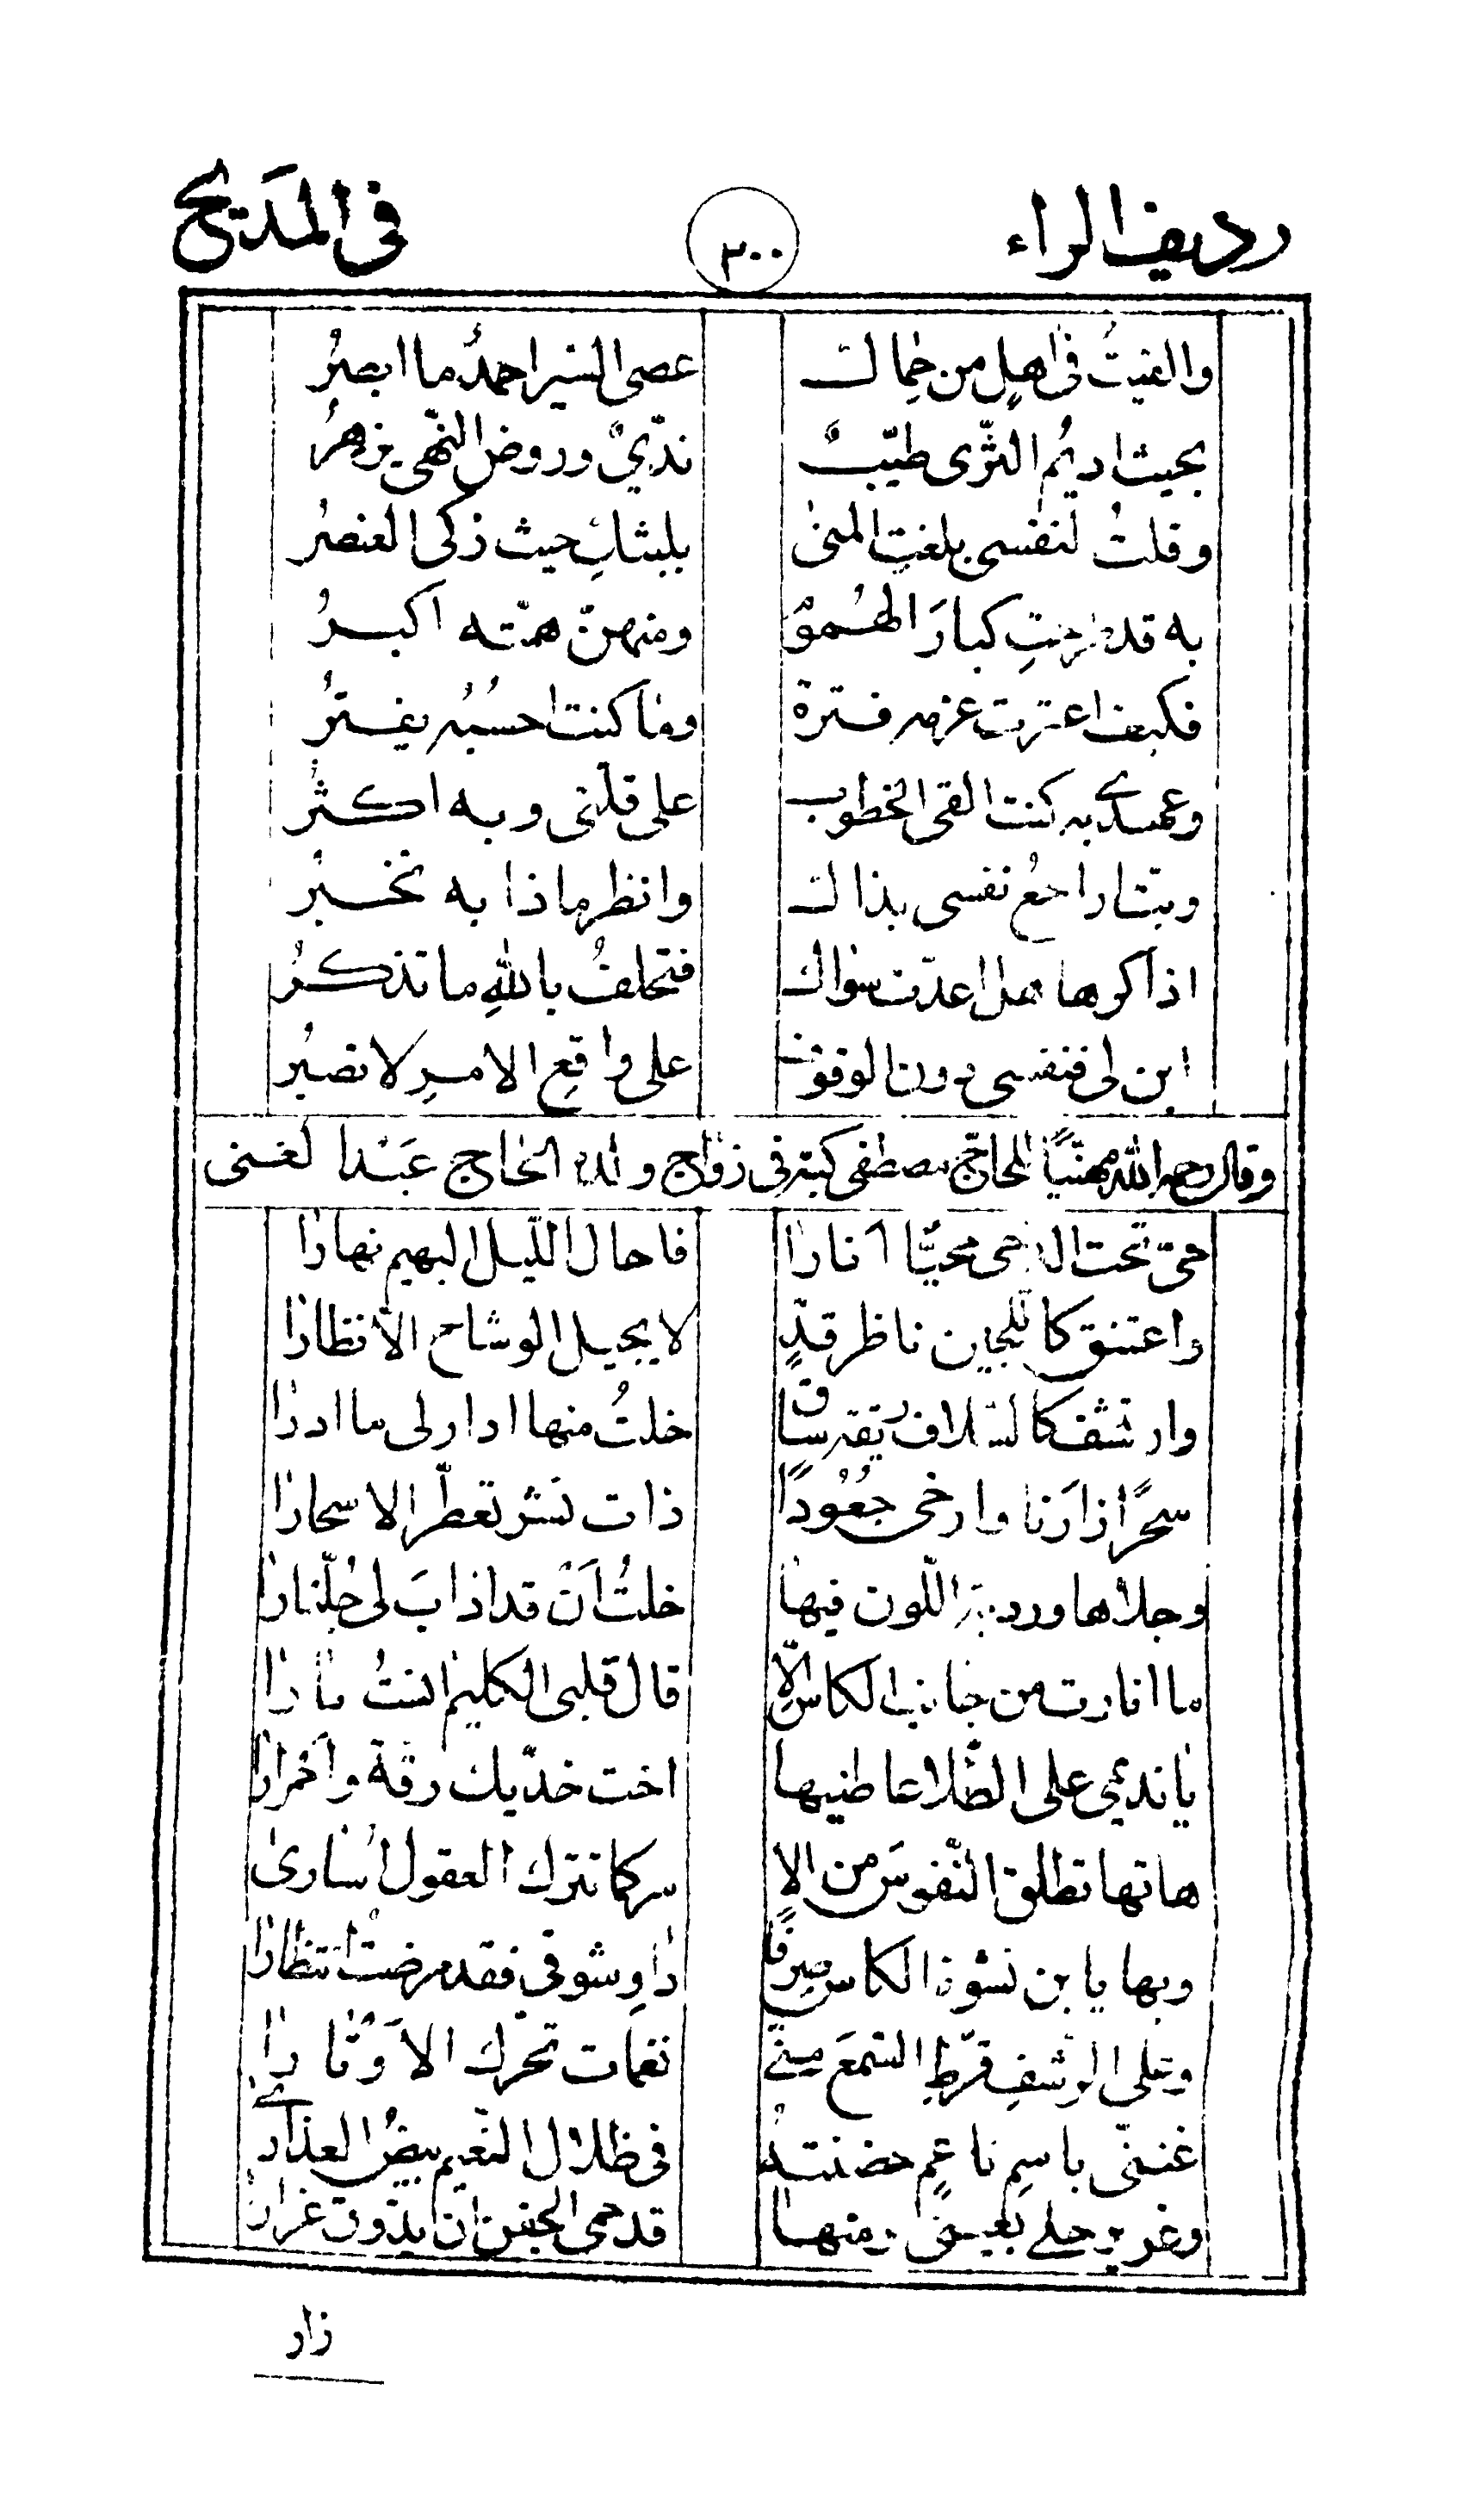 رديف الراء ٣٠٠ في المَديح
والقيتُ في اهلٍ من حماك عصى السير احمدُ ما ابصرُ
بحيث اديمُ الثّرى طيّبٌ نديٌّ وروض النّهى يزهرُ
وقلتُ لنفسي بلغتِ المنى بلبثكِ حيث زكى العنصرُ
به قد طرحتِ كبارَ الهُموم ومنهنّ همّته اكبرُ
فكيف اعترت عزمه فترة وما كنت احسبُه يفترُ
وعهدي به كنت القى الخطوب على قلّتي وبه اكثرُ
وبتّ اراجعُ نفسي بذاك وانظر ماذا به تخبرُ
اذاكرها هل اعدّت سواك فتحلفُ باللهِ ما تذكرُ
ابن لي فنفسي دون الوقوف على واقعِ الامرِ لا تصبُر
وقال رحمه الله مهنيًّا الحاج مصطفى كبه في زواج ولده الحاج عبَد الغني
حيّ تحت الدجى محيًّا اَنارا فاحال اللّيل البهيم نهارا
واعتنق كاللّجين ناظر قدٍّ لا يجيل الوشاح الّا نظارا
وارتشف كالسّلاف ريقة ساق خلتُ منها ادار لي ما ادارا
سحرًا زارَنا وارخى جُعُودًا ذات نشر تعطّر الاسحارا
وجلاها ورديّة اللّون فيها خلتُ اَنْ قد اذابَ لي جلّنارا
ما انارت من جانب الكاس الّا قال قلبي الكليم انستُ نارا
يا نديمي على الطّلا عاطنيها اخت خدّيك رقّة واحمرارا
هاتها تطلق النّفوسَ من الا سر كما تترك العقول اُسارى
وبها يا ابن نشوة الكاس صِرفًا داوِ شوقي فقد مرضتُ انتظارا
وعلى الرشفِ قرّطِ السّمعَ منّي نغمات تحرّك الاَوْتارا
غنّني باسمِ ناعمٍ حضنتهُ في ظلال النّعيم بيضُ العذارى
قد حمى الجفن ان يذوق غرارا
زار